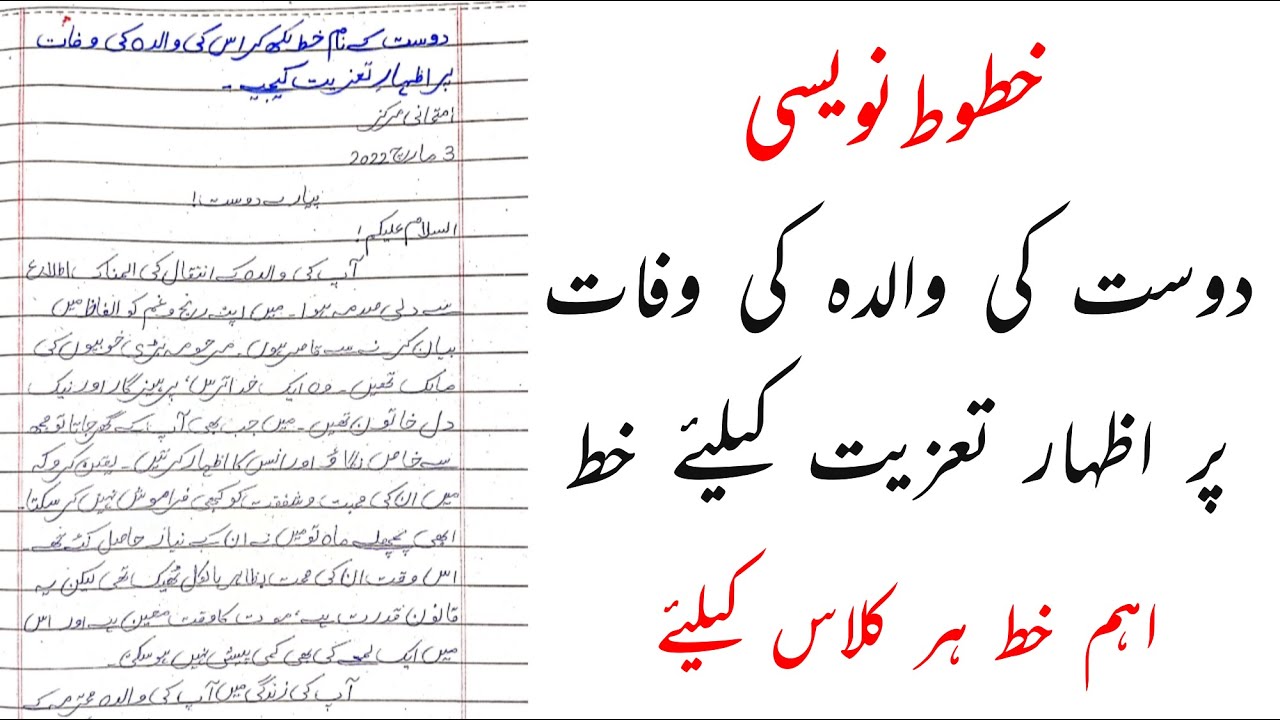 خطوط نویسی
دوست کی والدہ کی وفات
پر اظہار تعزیت کیلئے خط
اہم خط ہر کلاس کیلئے
دوست کے نام خط لکھ کر اس کی والدہ کی وفات
پر اظہارِ تعزیت کیجیے۔
امتحانی مرکز
3 مارچ 2022
پیارے دوست!
السلام علیکم!
آپ کی والدہ کے انتقال کی المناک اطلاع
سے دلی صدمہ ہوا۔ میں اپنے رنج و غم کو الفاظ میں
بیان کرنے سے قاصر ہوں۔ مرحومہ بڑی خوبیوں کی
مالک تھیں۔ وہ ایک خدا ترس، پرہیزگار اور نیک
دل خاتون تھیں۔ میں جب بھی آپ کے گھر جاتا تو مجھ
سے خاص لگاؤ اور انس کا اظہار کرتیں۔ یقین کرو کہ
میں ان کی محبت و شفقت کو کبھی فراموش نہیں کر سکتا۔
ابھی پچھلے ماہ تو میں نے ان کے نیاز حاصل کئے تھے۔
اس وقت ان کی صحت بظاہر بالکل ٹھیک تھی لیکن یہ
قانون قدرت ہے، موت کا وقت معین ہے اور اس
میں ایک لمحہ کی بھی کمی بیشی نہیں ہو سکتی۔
آپ کی زندگی میں آپ کی والدہ محترمہ کے